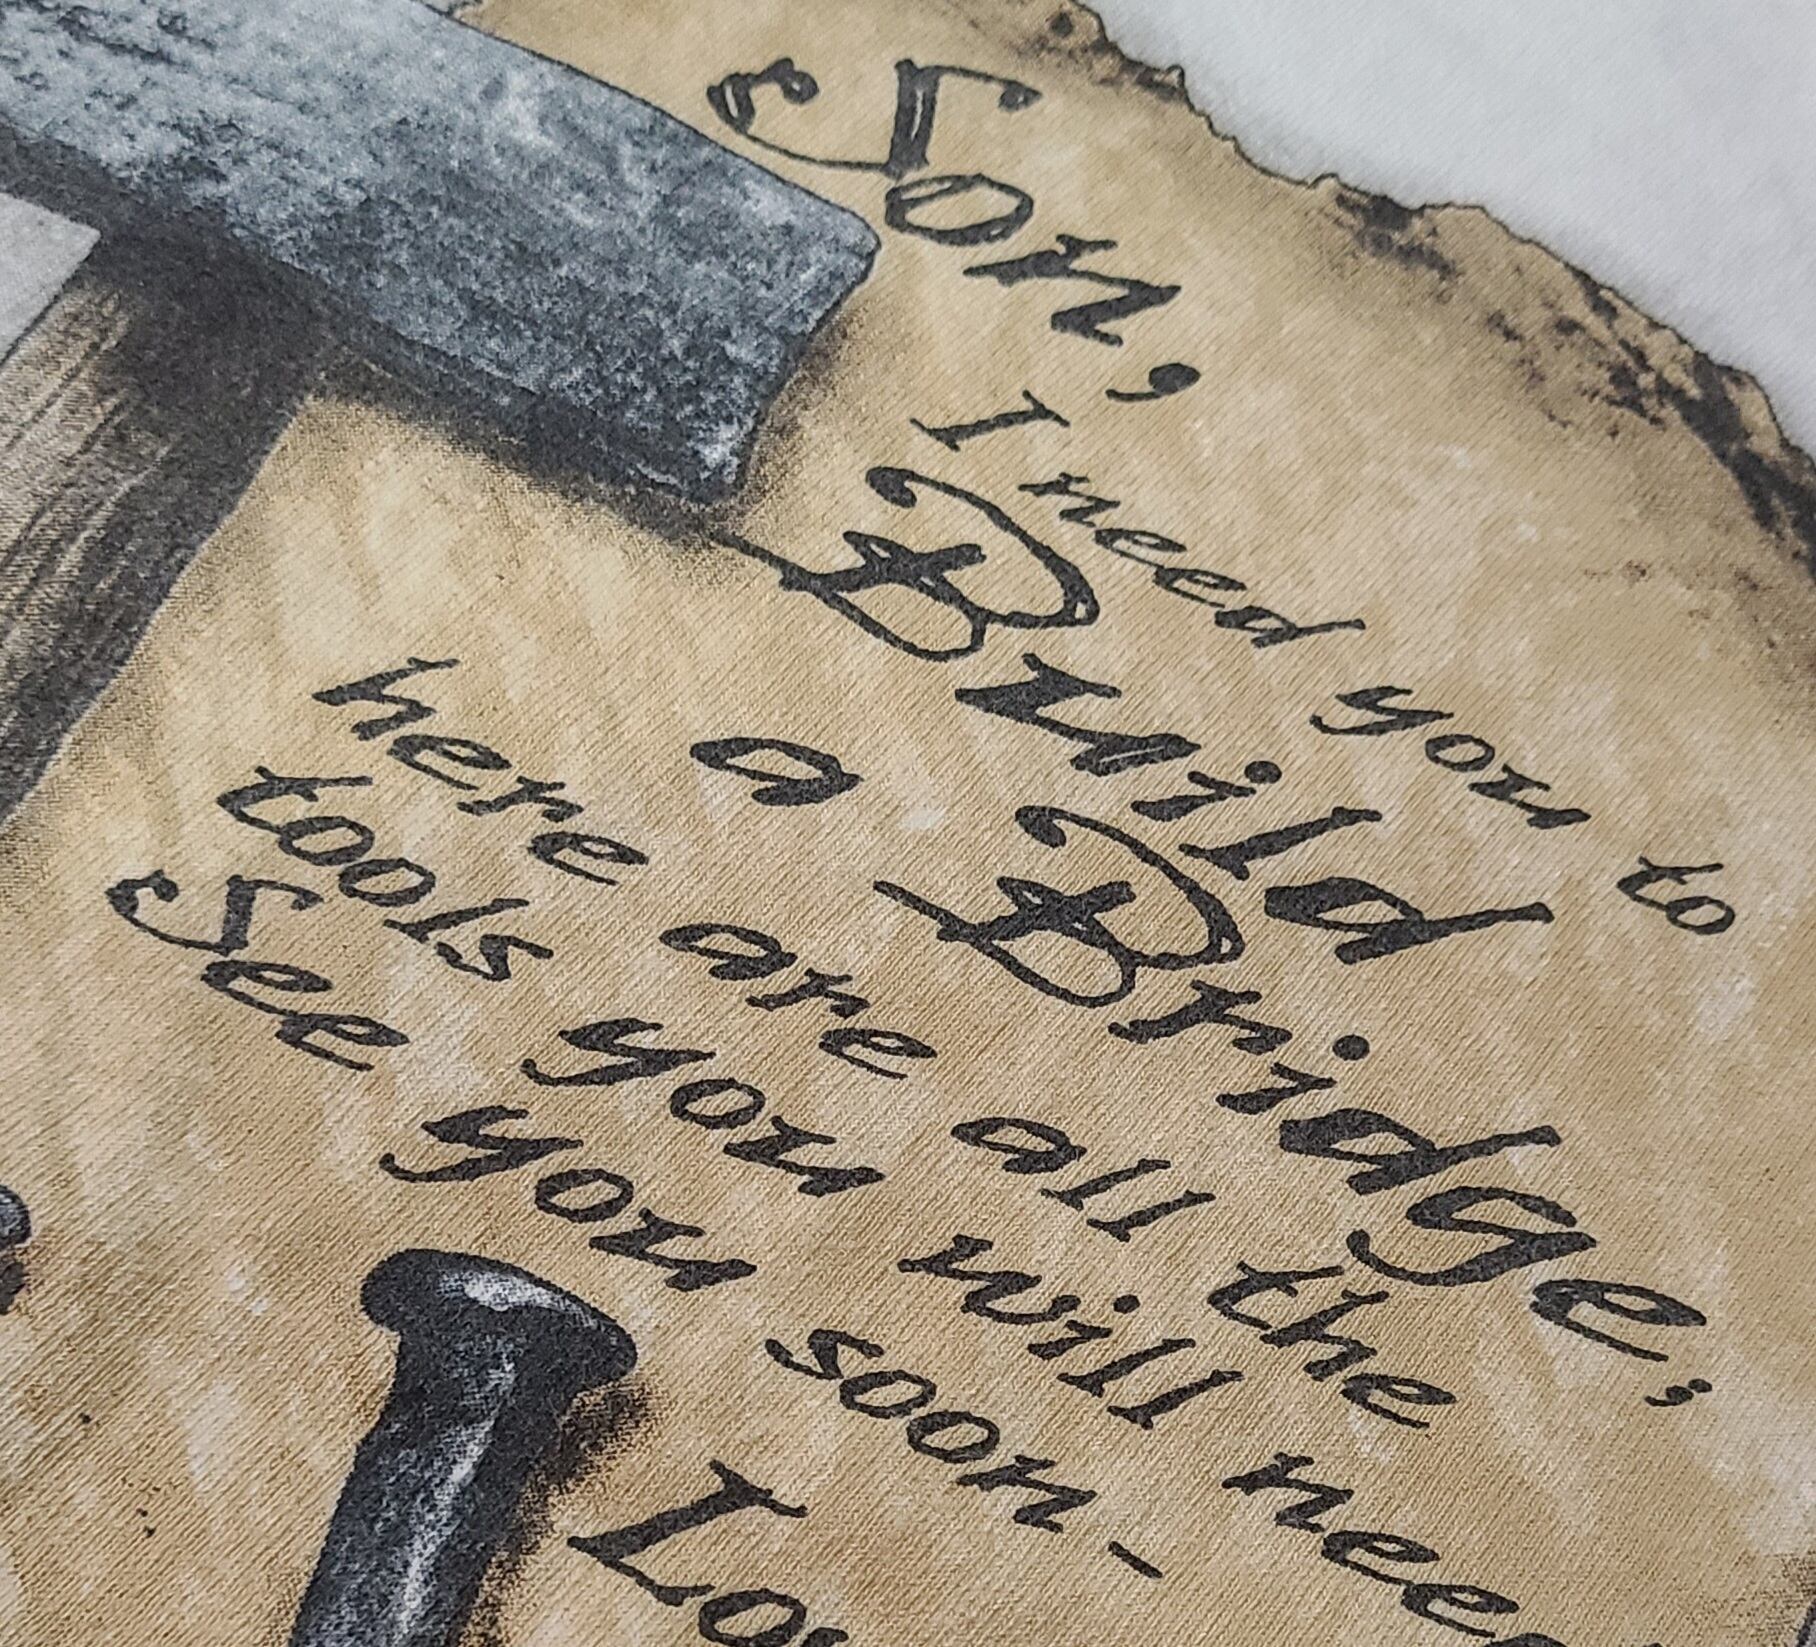 Son,
I need you to
Build
a Bridge,
here are all the
tools you will nee
See you soon-
Lov